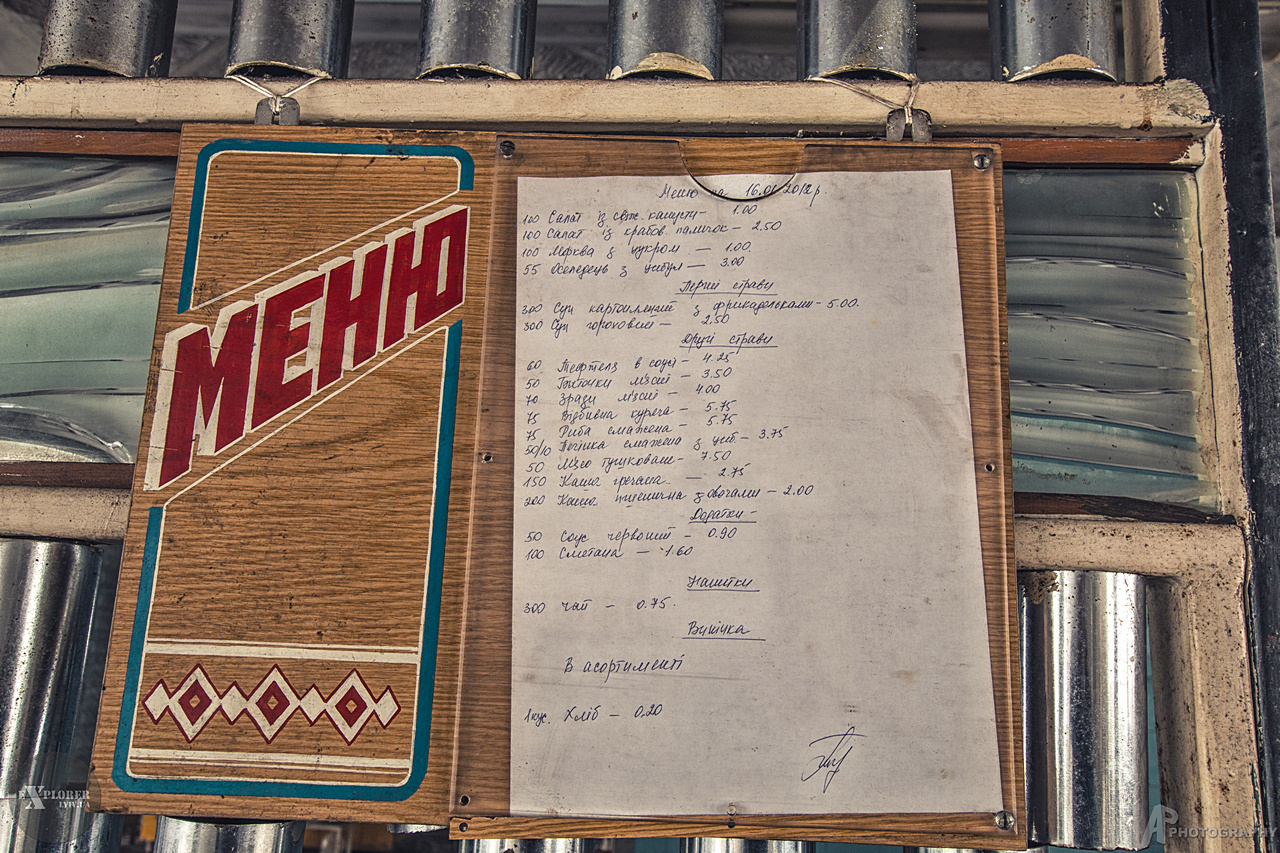 МЕНЮ
Меню на 16.01.2012 р.
100 Салат із свіж. капусти - 1.00
100 Салат із крабов. паличок - 2.50
100 Морква з цукром - 1.00
55 Оселедець з цибул - 3.00
Перші страви
300 Суп картопляний з фрикадельками - 5.00.
300 Суп гороховий - 2.50
Другі страви
60 Тефтелі в соусі - 4.25
50 Биточки м'ясні - 3.50
70 Зрази м'ясні - 4.00
75 Відбивна куряча - 5.75
75 Риба смажена - 5.75
50/10 Печінка смажена з циб - 3.75
50 М'ясо тушковане - 7.50
150 Каша гречана - 2.75
200 Каша пшенична з овочами - 2.00
Додатки -
50 Соус червоний - 0.90
100 Сметана - 1.60
Напитки
300 чай - 0.75.
Випічка
В асортименті
1 кус. Хліб - 0.20
EXPLORER
LVIV.UA
AP PHOTOGRAPHY